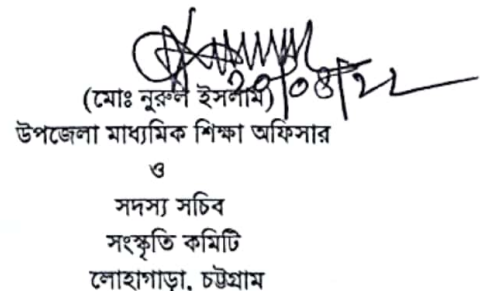 ২০/০৪/২২
(মোঃ নুরুল ইসলাম)
উপজেলা মাধ্যমিক শিক্ষা অফিসার
ও
সদস্য সচিব
সংস্কৃতি কমিটি
লোহাগাড়া, চট্টগ্রাম